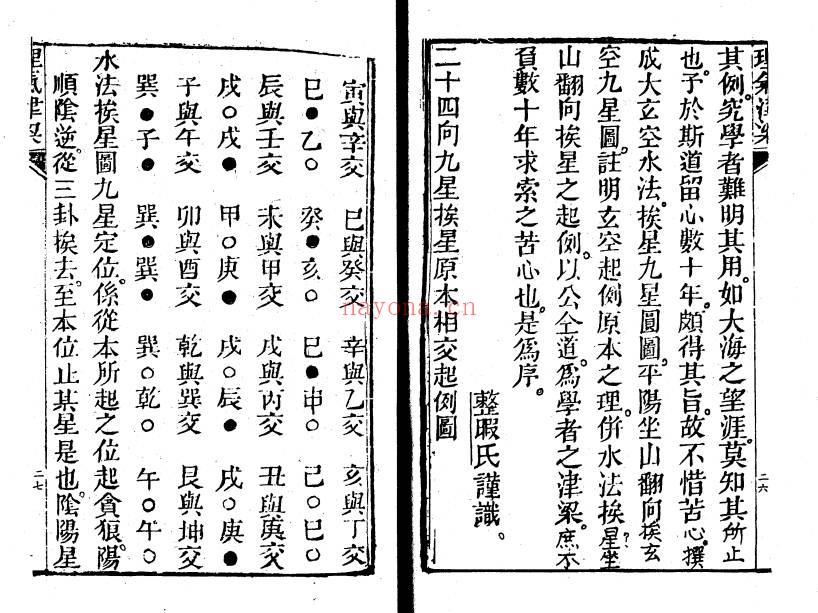 其例。究學者難明其用。如大海之望涯。莫知其所止
也。予於斯道留心數十年。頗得其旨。故不惜苦心。撰
成大玄空水法。挨星九星圓圖。平陽坐山翻向挨玄
空九星圖。註明玄空起例原本之理。併水法挨星坐
山翻向挨星之起例。以公仝道。爲學者之津梁。庶不
負數十年求索之苦心也。是爲序。
整暇氏謹識。
二十四向九星挨星原本相交起例圖
二六
寅與辛交 巳與癸交 辛與乙交 亥與丁交
巳●乙○ 癸●亥○ 巳●申○ 己○巳○
辰與壬交 未與甲交 戌與丙交 丑與庚交
戌○戌● 甲○庚● 戌○辰● 戌○庚●
子與午交 卯與酉交 乾與巽交 艮與坤交
巽●子● 巽●巽● 巽○乾○ 午○午○
水法挨星圖九星定位。係從本所起之位起貪狼。陽
順陰逆。從三卦挨去。至本位止某星是也。陰陽星
二七
nayona.cn